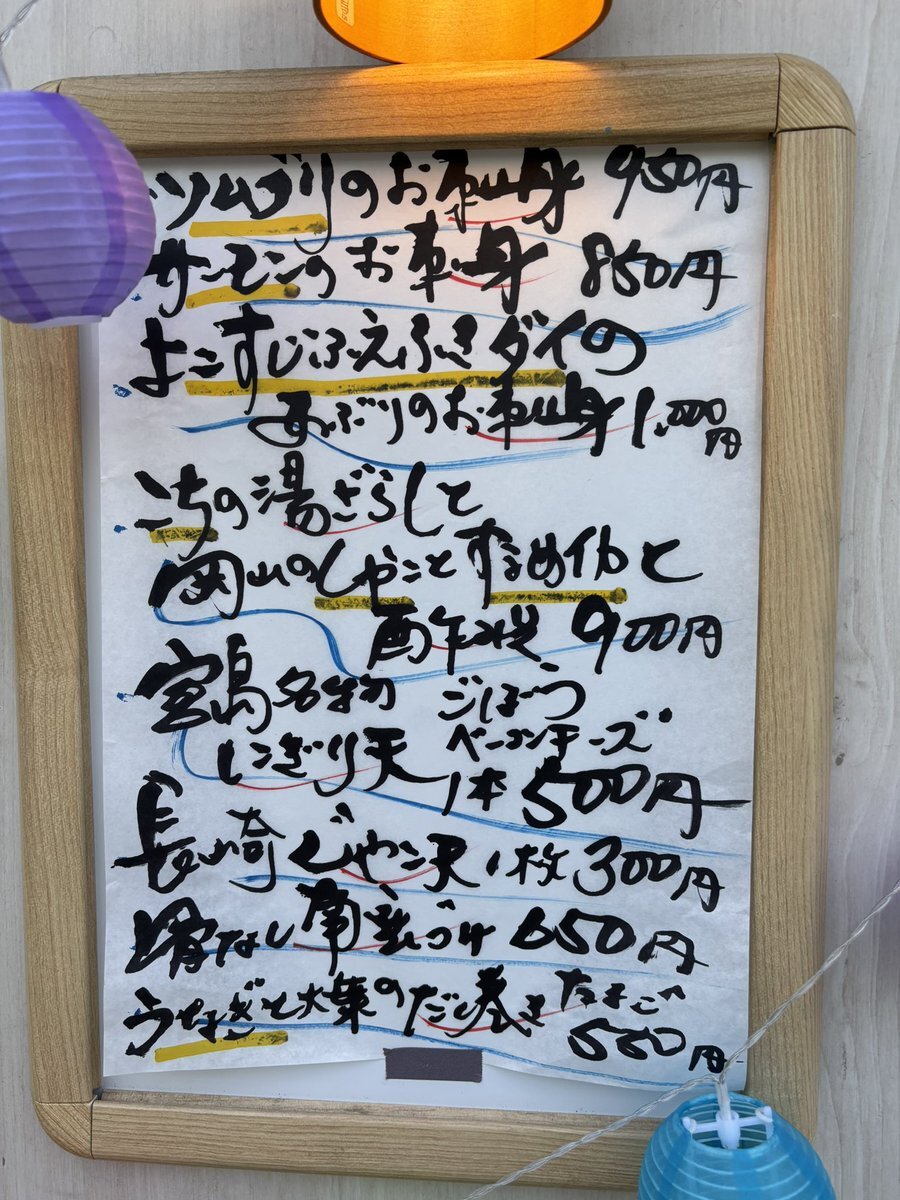 ツムブリのお刺身 950円
サーモンのお刺身 850円
よこすじふえふきダイの
あぶりのお刺身 1,000円
こちの湯ざらしと
岡山のしゃことするめイカと
酢 900円
宮島名物 ごぼう
にぎり天 ベーコンチーズ
1本 500円
長崎じゃこ天 1枚 300円
骨なし 南蛮づけ 650円
うなぎと大葉のだし巻きたまごへ
550円